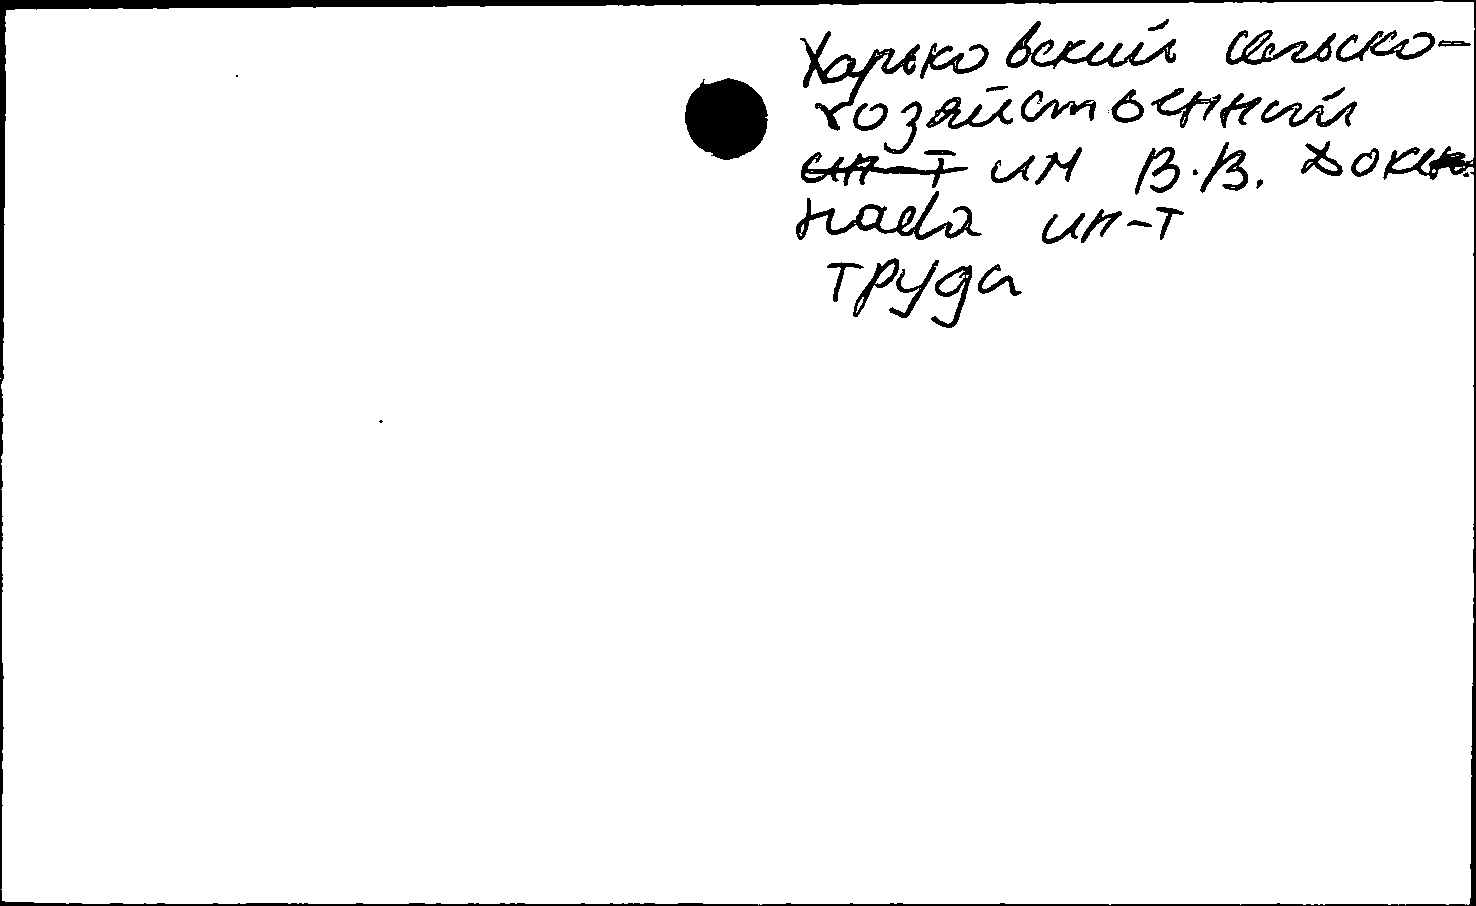 Харьковский сельско-
хозяйственный
ин-т им В.В. Доку
чаева ин-т
труда